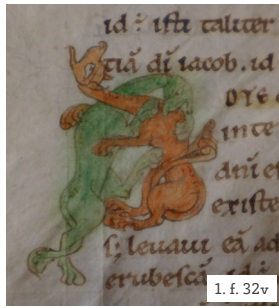 id ⁖ isti taliter
tiā dī iacob . id
OYE
inte
dnī es
existe
s; leuaui eā ad
erubescā . id ⁖
1. f. 32v